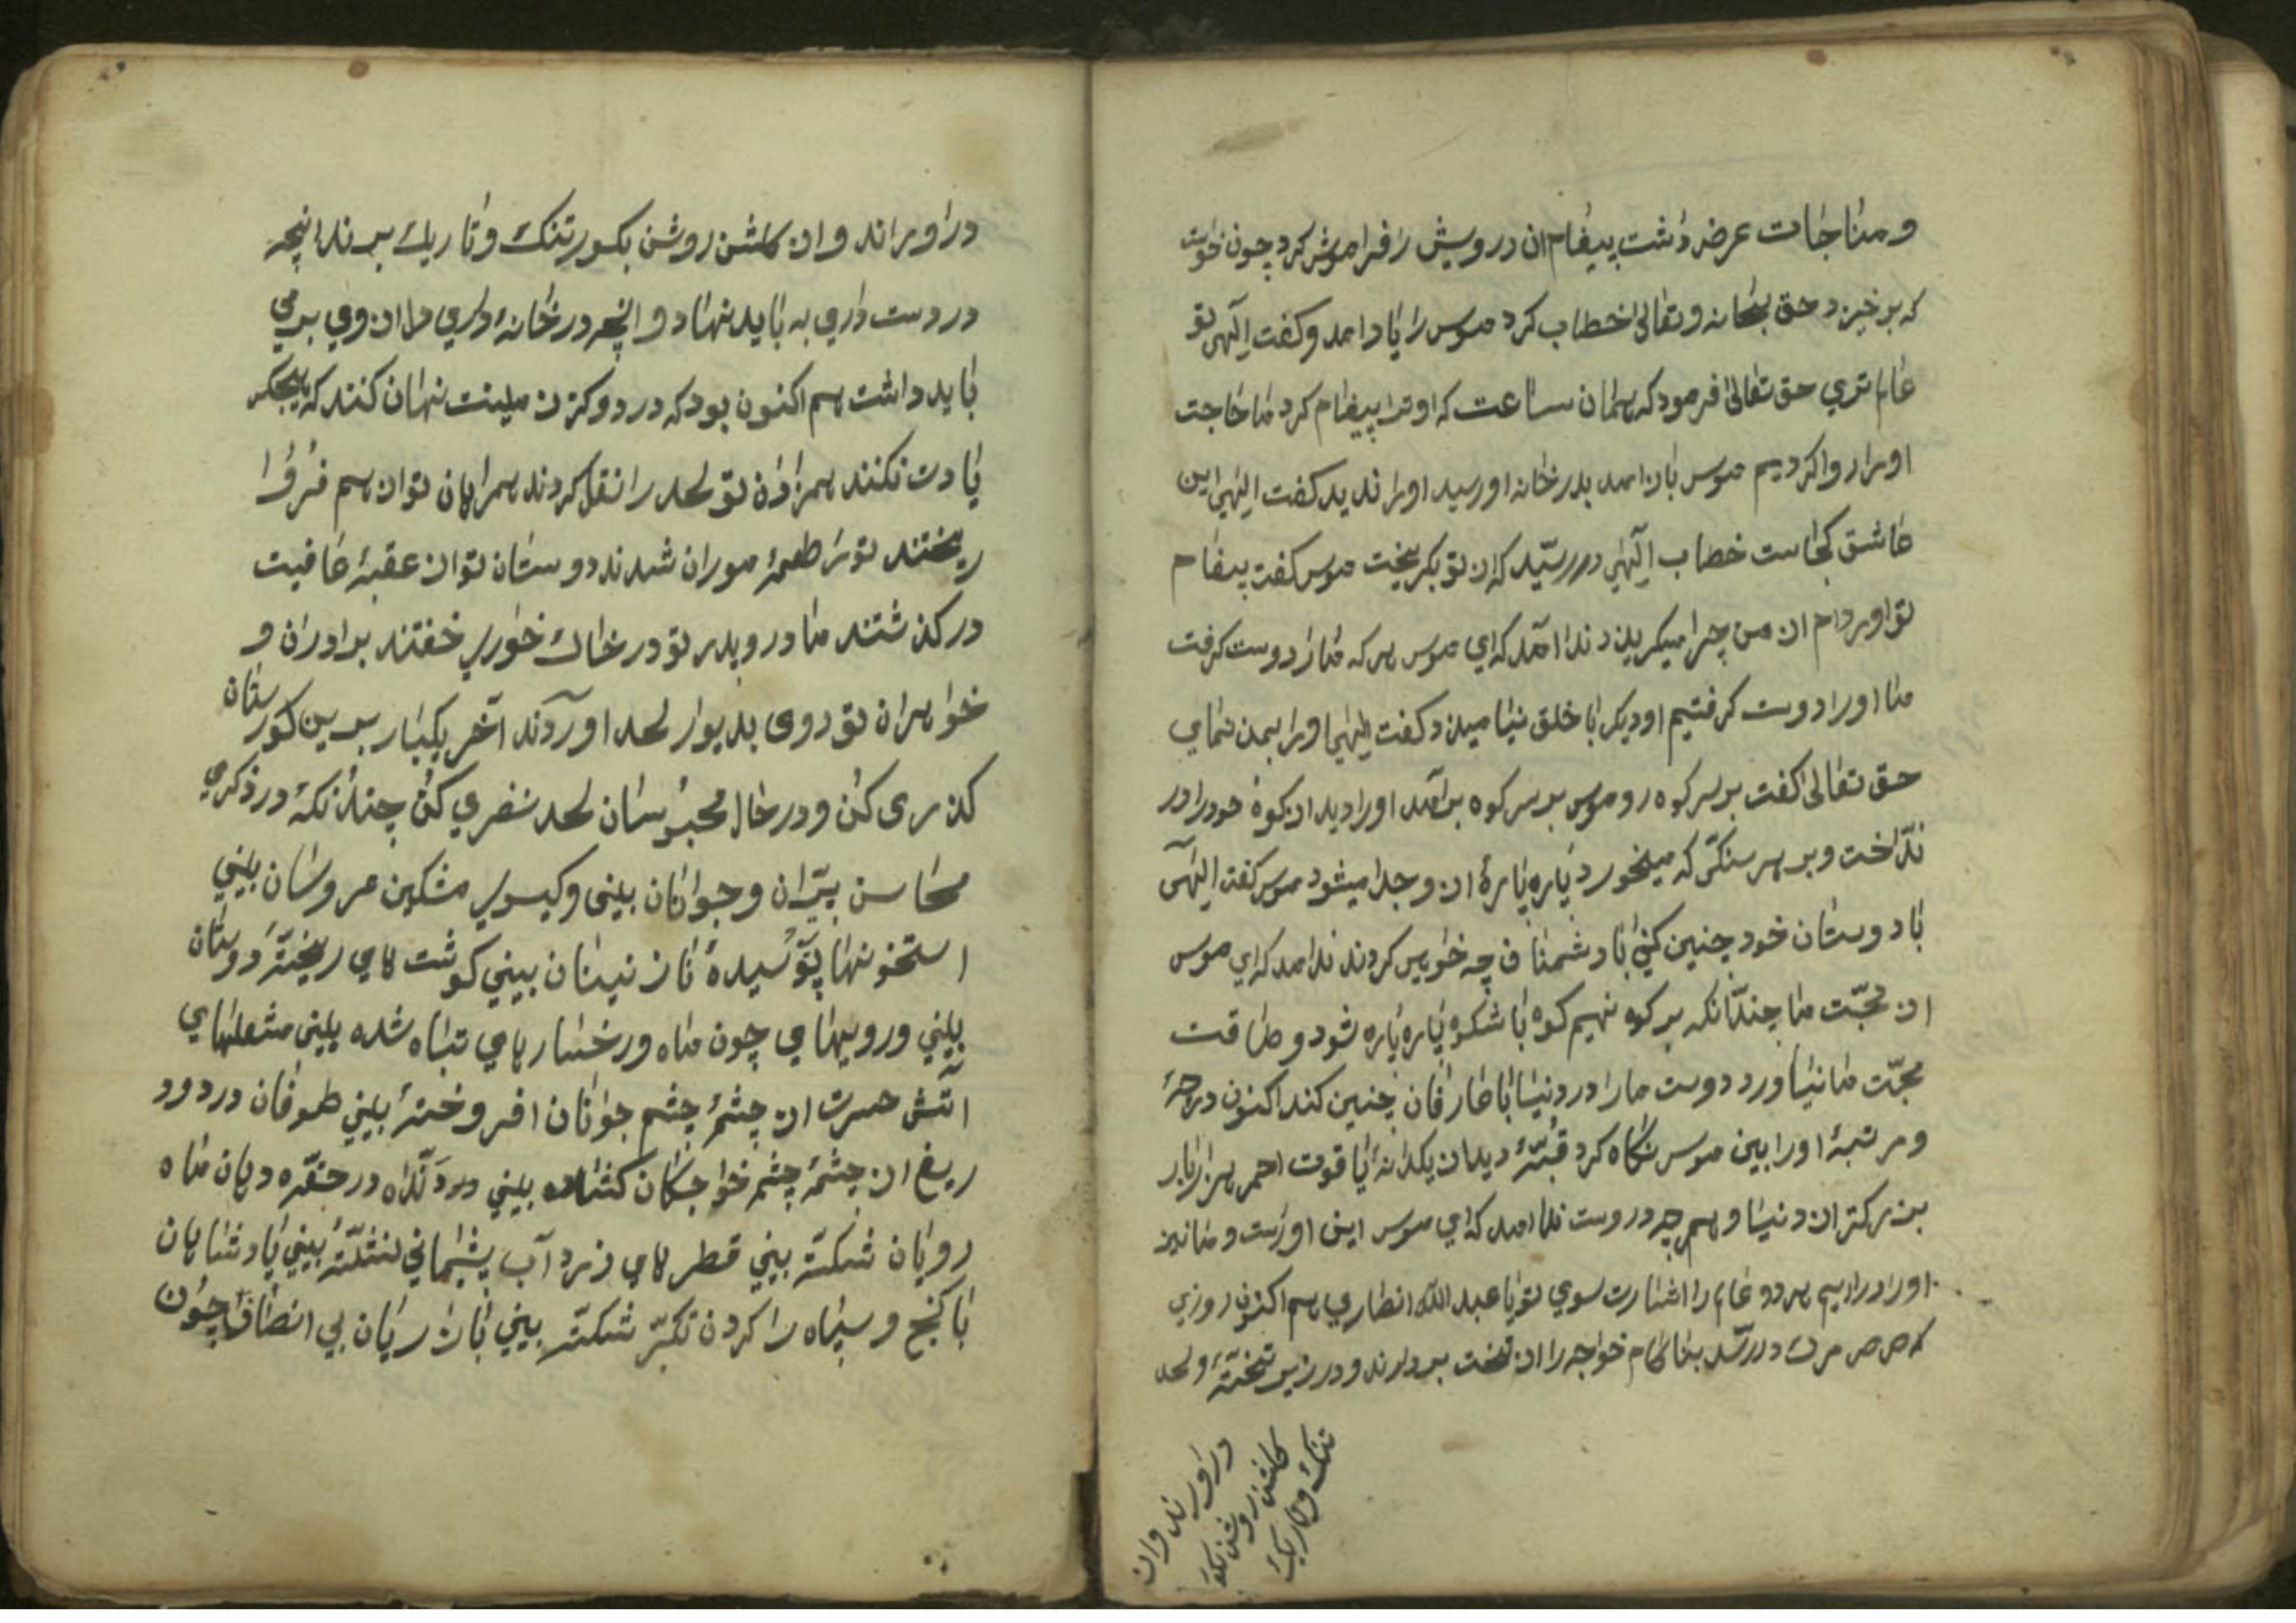 و مناجات عرض داشت پیغام ان درویش را فراموش کرد چون خواست
که برخیزد حق سبحانه و تعالی خطاب کرد موسی را یاد امد و کفت الهی تو
عالم تری حق تعالی فرمود که همان ساعت که او ترا پیغام کرد ما حاجت
او را روا کردیم موسی باز امد بدر خانه او رسید او را ندید کفت الهی این
عاشق کجاست خطاب الهی در رسید که از تو بکریخت موسی کفت پیغام
تو اوردم از من چرا میکریزد ندا امد که ای موسی هر که ما را دوست کرفت
ما او را دوست کرفتیم او دیکر با خلق نیامیزد کفت الهی او را بمن نمای
حق تعالی کفت بر سر کوه رو موسی بر سر کوه برامد او را دید از کوه خود را در
انداخت و بر هر سنکی که میخورد پاره پاره از و جدا میشود موسی کفت الهی
با دوستان خود چنین کنی با دشمنان چه خواهی کردند ندا امد که ای موسی
از محبّت ما چندانکه بر کوه نهیم کوه با شکوه پاره پاره شود و طاقت
محبّت ما نیاورد دوست ما را در دنیا با عارفان چنین کند اکنون درجهٔ
و مرتبهٔ او را ببین موسی نکاه کرد قبّهٔ دید از یکدانهٔ یاقوت احمر هزار بار
بزرکتر از دنیا و هر چه دروست ندا امد که ای موسی این او راست و ما نیز
او را در اریم هر دو عالم را اشارت سوی تو یا عبد الله انصاری هم اکنون روزی
که مرک در رسد بناکام خواجه را از تخت بردارند و در زیر تختهٔ و لحد
دراورند و از
کلشن روشن بکو
تنک و تاریک
دراورانند و از کلشن روشن بکور تنک و تاریک برند انچه
در دست داری به باید نهاد و انچه در خانهٔ داری دل از وی بر می
باید داشت هم اکنون بود که در دو کز زمینت نهان کنند که هیچکس
یادت نکنند همزادان تو لحد را نقل کردند همراهان تو از هم فرو
ریختند تو را طعمهٔ موران شدند دوستان تو از عقبهٔ عافیت
در کذشتند مادر و پدر تو در خاک خواری خفتند برادران و
خواهران تو روی بدیوار لحد اوردند آخر یکبار برین کورستان
کذری کن و در حال محبوسان لحد نظری کن چندانکه در نکری
محاسن پیران و جوانان بینی و کیسوی مشکین عروسان بینی
استخونها پوسیدهٔ نازنینان بینی کوشت های ریختهٔ دوستان
بینی و رویهای چون ماه و رخسارهای تباه شده بینی مشعلهای
اتش حسرت از چشمهٔ چشم جوانان افروختهٔ بینی طوفان درد و د
ریغ از چشمهٔ چشم خواجکان کشاده بینی دردانه در حقّه دهان ماه
رویان شکستهٔ بینی قطرهای زرد آب پشیمانی نشستهٔ بینی پادشاهان
با کنج و سپاه را کردن تکبّر شکستهٔ بینی بازاریان بی انصاف چون